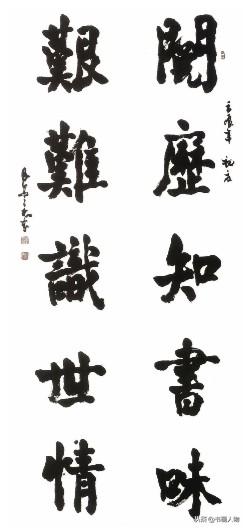 壬辰年
閱歷知書味
艱難識世情
头条@书画人物